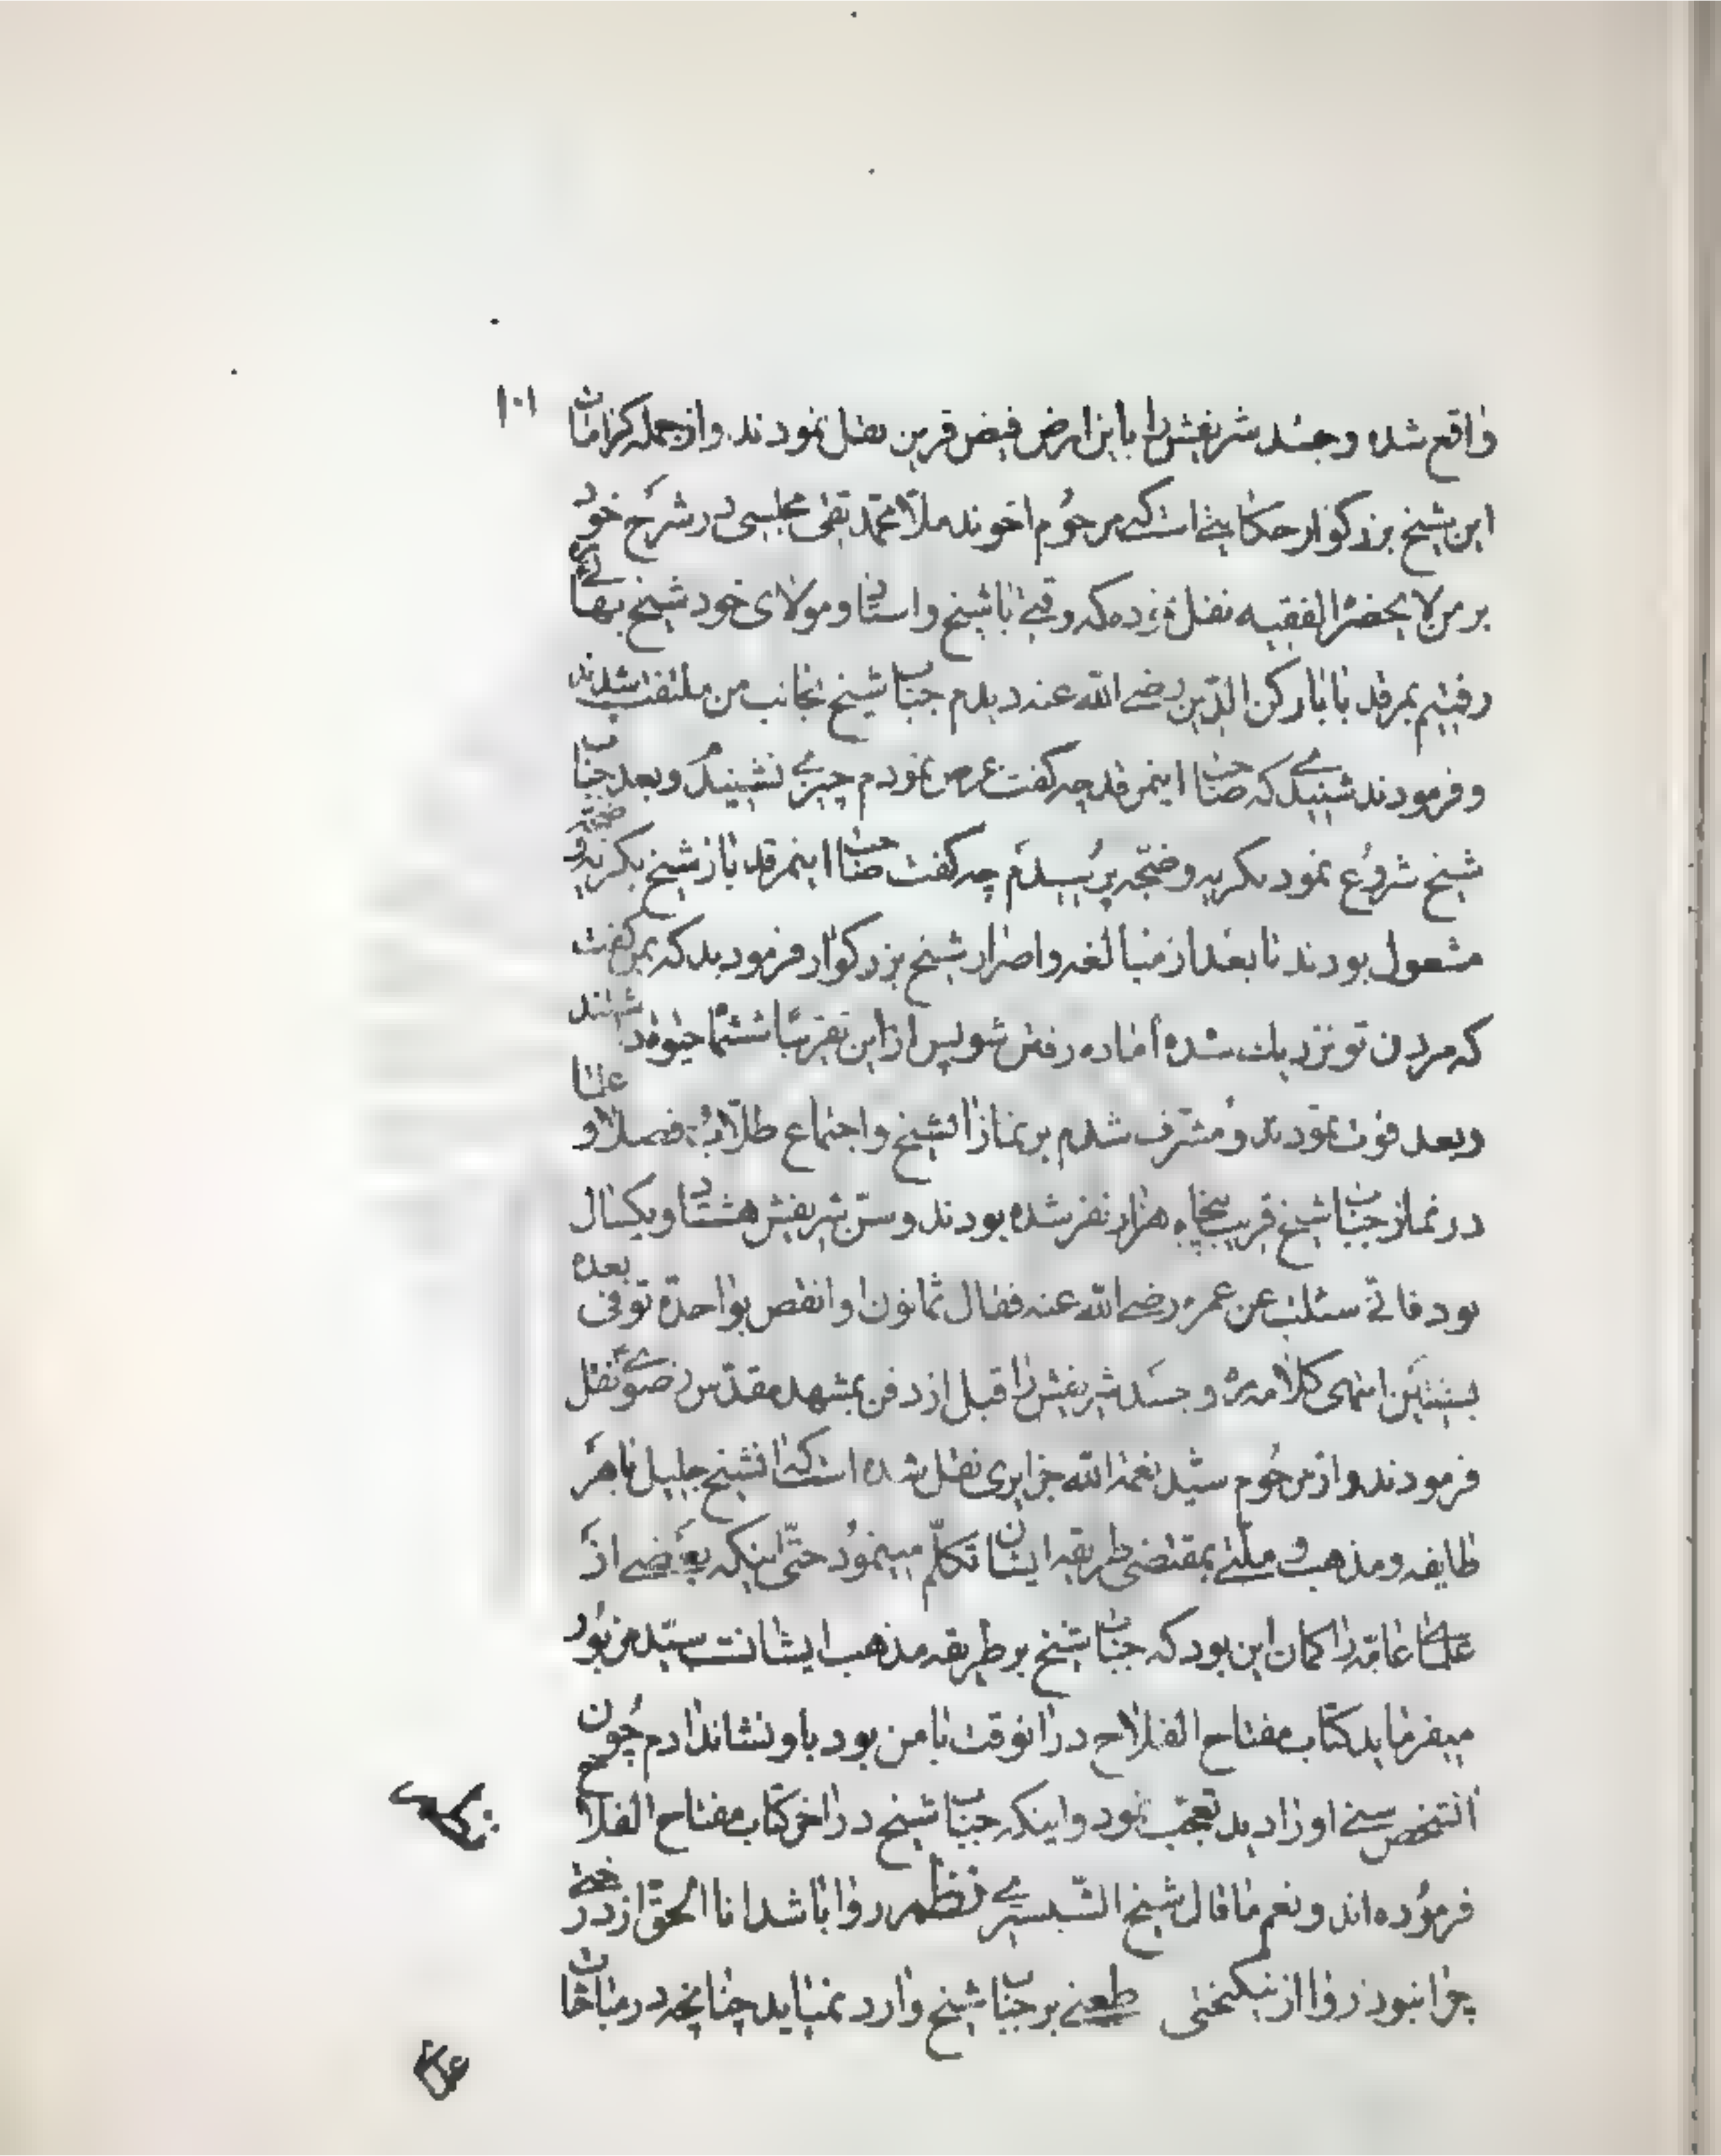 ۱۰۱
واقع شده و جسد شریفش را باین ارض فیض قرین نقل نمودند و از جمله کرامات
این شیخ بزرگوار حکایتی است که مرحوم اخوند ملا محمد تقی مجلسی در شرح خود
بر من لا یحضره الفقیه نقل نموده که وقتی با شیخ و استاد و مولای خود شیخ بهائی
رفتیم بمرقد بابا رکن الدین رضی الله عنه دیدم جناب شیخ بجانب من ملتفت شدند
و فرمودند شنیدی که صاحب اینمرقد چه گفت عرض نمودم چیزی نشنیدم و بعد جناب
شیخ شروع نمود بگریه و ضجّه پرسیدم چه گفت صاحب اینمرقد باز شیخ بگریه و ضجّه
مشعول بودند تا بعد از مبالغه و اصرار شیخ بزرگوار فرمودند که بمن گفت
که مردن تو نزدیک شده اماده رفتن شو پس از این تقریبا ششماه حیوة داشتند
و بعد فوت نمودند و مشرف شدم بر نماز الشیخ و اجتماع طلاب و فضلا و علما
در نماز جناب شیخ قریب پنجاه هزار نفر شده بودند و سنّ شریفش هشتاد و یکسال
بود فانی سئلت عن عمره رضی الله عنه فقال ثمانون او انقص بواحدة توفی بعده
بسنتین انتهی کلامه ره و جسد شریفش را قبل از دفن بمشهد مقدس رضوی نقل
فرمودند و از مرحوم سیّد نعمة الله جزایری نقل شده است که انشیخ جلیل با هر
طایفه و مذهب و ملّتی بمقتضی طریقه ایشان تکلّم مینمود حتّی اینکه بعضی از
علمای عامّه را کمان این بود که جناب شیخ بر طریقه مذهب ایشانست سیّد مزبور
میفرماید کتاب مفتاح الفلاح در انوقت با من بود باو نشاندادم چون
انشخص سنی او را دید تعجّب نمود و اینکه جناب شیخ در اخر کتاب مفتاح الفلاح
فرموده اند و نعم ما قال شیخ الشّبستری نظم روا باشد انا الحق از درختی
چرا نبود روا از نیکبختی طعنی بر جناب شیخ وارد نمیاید چنانچه در مباحثات